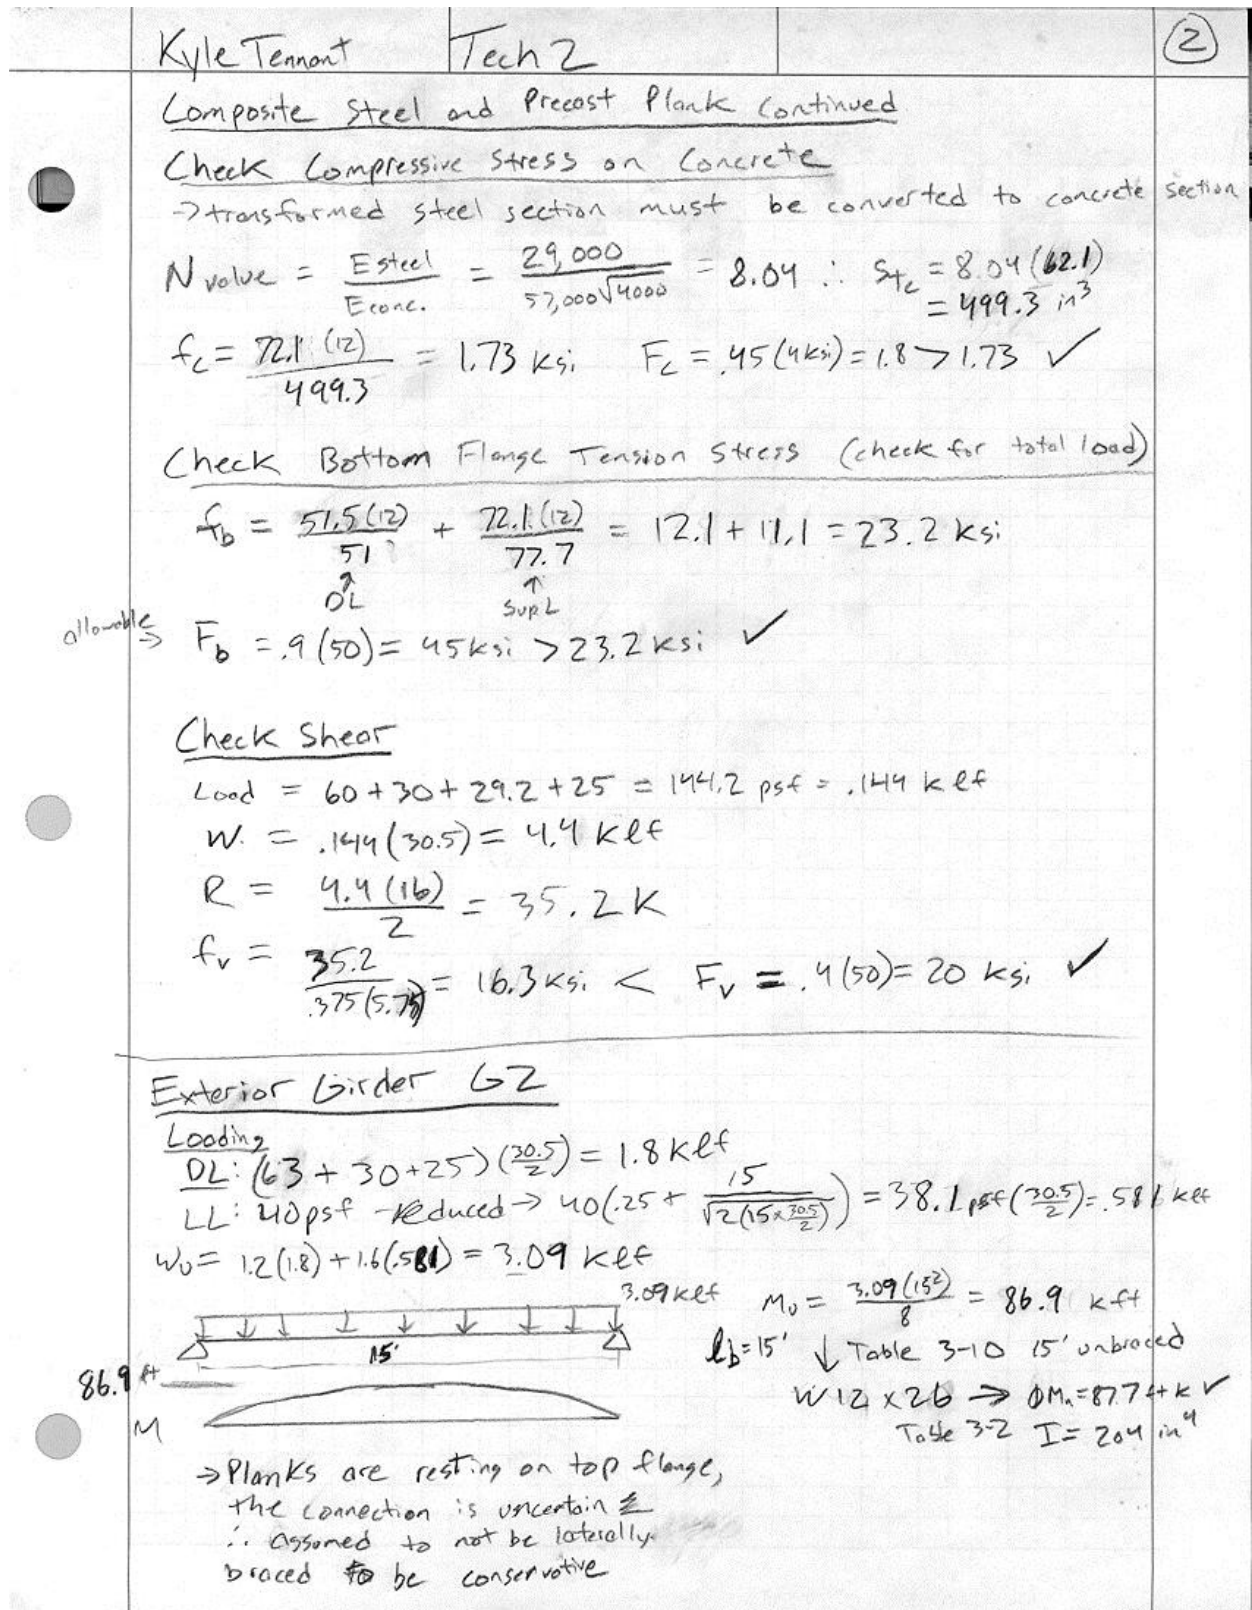 Kyle Tennant Tech 2 2
Composite Steel and Precast Plank Continued
Check Compressive Stress on Concrete
→ transformed steel section must be converted to concrete section
N value = Esteel / Econc. = 29,000 / 57,000√4000 = 8.04 ∴ Stc = 8.04 (62.1)
= 499.3 in³
fc = 72.1 (12) / 499.3 = 1.73 ksi Fc = .45 (4ksi) = 1.8 > 1.73 ✓
Check Bottom Flange Tension Stress (check for total load)
fb = 51.5 (12) / 51 + 72.1 (12) / 77.7 = 12.1 + 11.1 = 23.2 ksi
↑ DL ↑ Sup L
allowable → Fb = .9 (50) = 45 ksi > 23.2 ksi ✓
Check Shear
Load = 60 + 30 + 29.2 + 25 = 144.2 psf = .144 klf
W. = .144 (30.5) = 4.4 klf
R = 4.4 (16) / 2 = 35.2 K
fv = 35.2 / .375 (5.75) = 16.3 ksi < Fv = .4 (50) = 20 ksi ✓
Exterior Girder G2
Loading
DL: (63 + 30 + 25) (30.5/2) = 1.8 klf
LL: 40 psf - reduced → 40 (.25 + 15 / √2(15 × 30.5/2)) = 38.1 psf (30.5/2) = .581 klf
Wu = 1.2 (1.8) + 1.6 (.581) = 3.09 klf
3.09 klf Mu = 3.09 (15²) / 8 = 86.9 kft
15' lb = 15' ↓ Table 3-10 15' unbraced
86.9 ft W12 × 26 → ΦMn = 87.7 ft k ✓
M Table 3-2 I = 204 in⁴
→ Planks are resting on top flange,
the connection is uncertain
∴ assumed to not be laterally
braced to be conservative